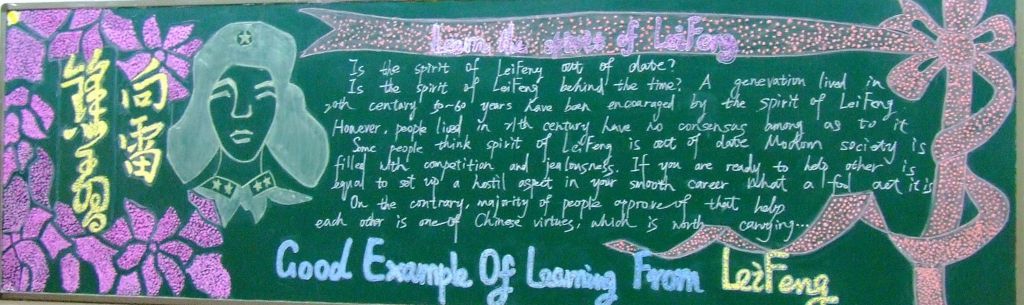 向雷
Learn the spirit of LeiFeng
Is the spirit of LeiFeng out of date?
Is the spirit of LeiFeng behind the time? A generation lived in
20th century 50-60 years have been encouraged by the spirit of LeiFeng.
However, people lived in 21th century have no consensus among as to it
Some people think spirit of LeiFeng is out of date Modern society is
filled with competition and jealousness. If you are ready to help other is
equal to set up a hostil aspect in your smooth career What a fool act it is
On the contrary, majority of people approve of that help
each other is one of Chinese virtues, which is worth carrying...
Good Example Of Learning From LeiFeng